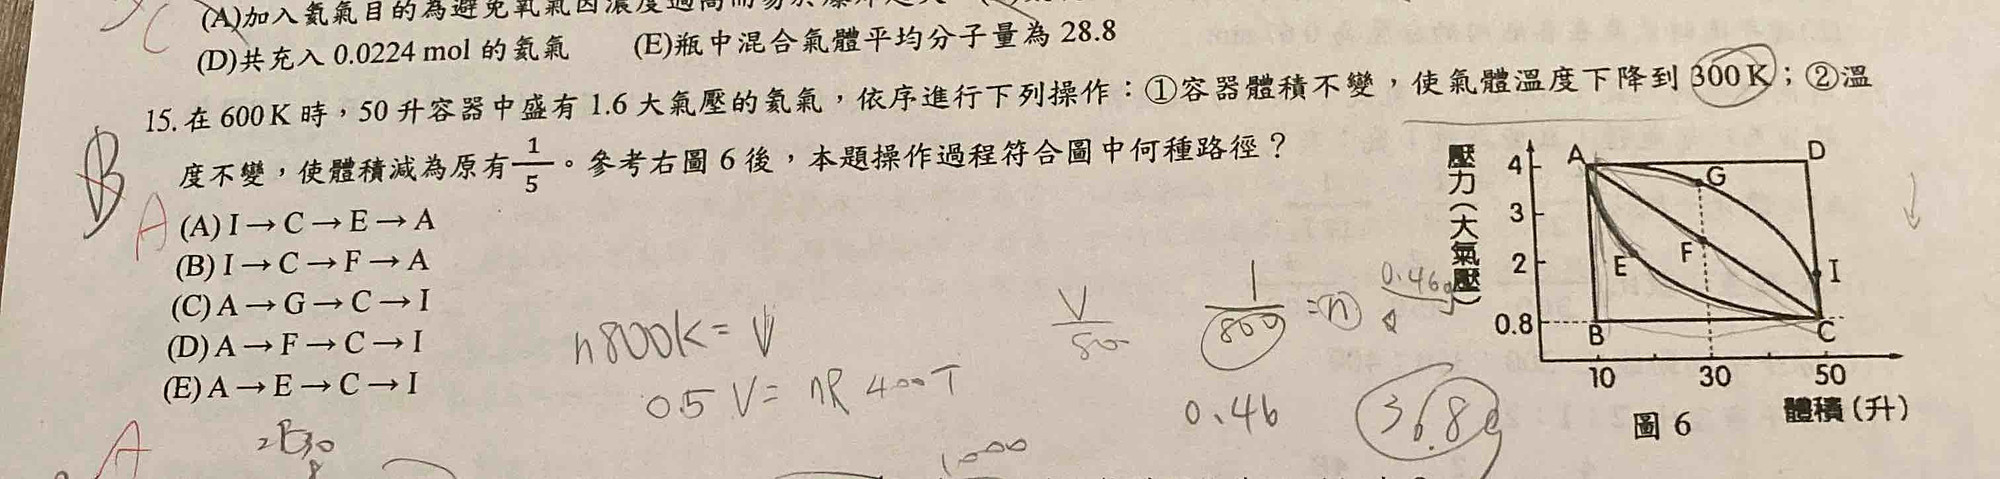 (A)加入氦氣目的為避免氧氣因濃度過高而易於
(D)共充入 0.0224 mol 的氦氣 (E)瓶中混合氣體平均分子量為 28.8
C
15. 在 600 K 時，50 升容器中盛有 1.6 大氣壓的氦氣，依序進行下列操作：①容器體積不變，使氣體溫度下降到 300 K；②溫
度不變，使體積減為原有 1/5。參考右圖 6 後，本題操作過程符合圖中何種路徑？
B
A
(A) I → C → E → A
(B) I → C → F → A
(C) A → G → C → I
(D) A → F → C → I
(E) A → E → C → I
壓力(大氣壓)
4
3
2
0.8
A
D
G
F
E
I
B
C
10 30 50
體積(升)
圖 6
n800K = V
0.5 V = nR 400T
V/80
1/800 = n
0.46g
0.46
36.8g
A